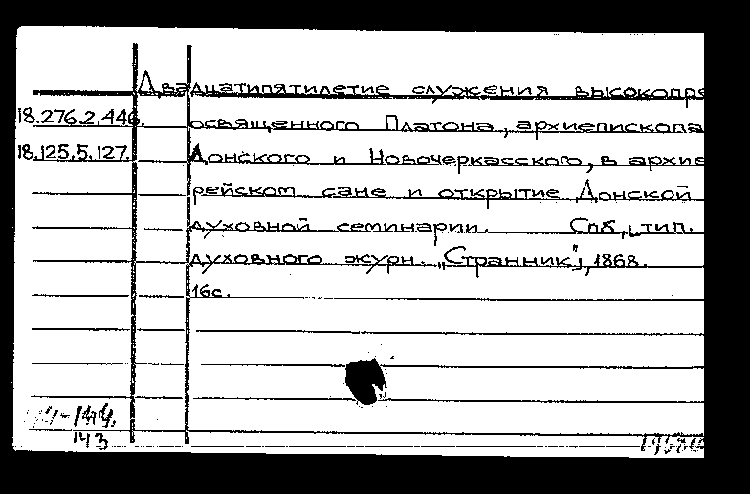 Двадцатипятилетие служения высокопре
18.276.2.446. освященного Платона, архиепископа
18.125.5.127. Донского и Новочеркасского, в архие
рейском сане и открытие Донской
духовной семинарии. Спб, тип.
духовного журн. „Странник", 1868.
16с.
143